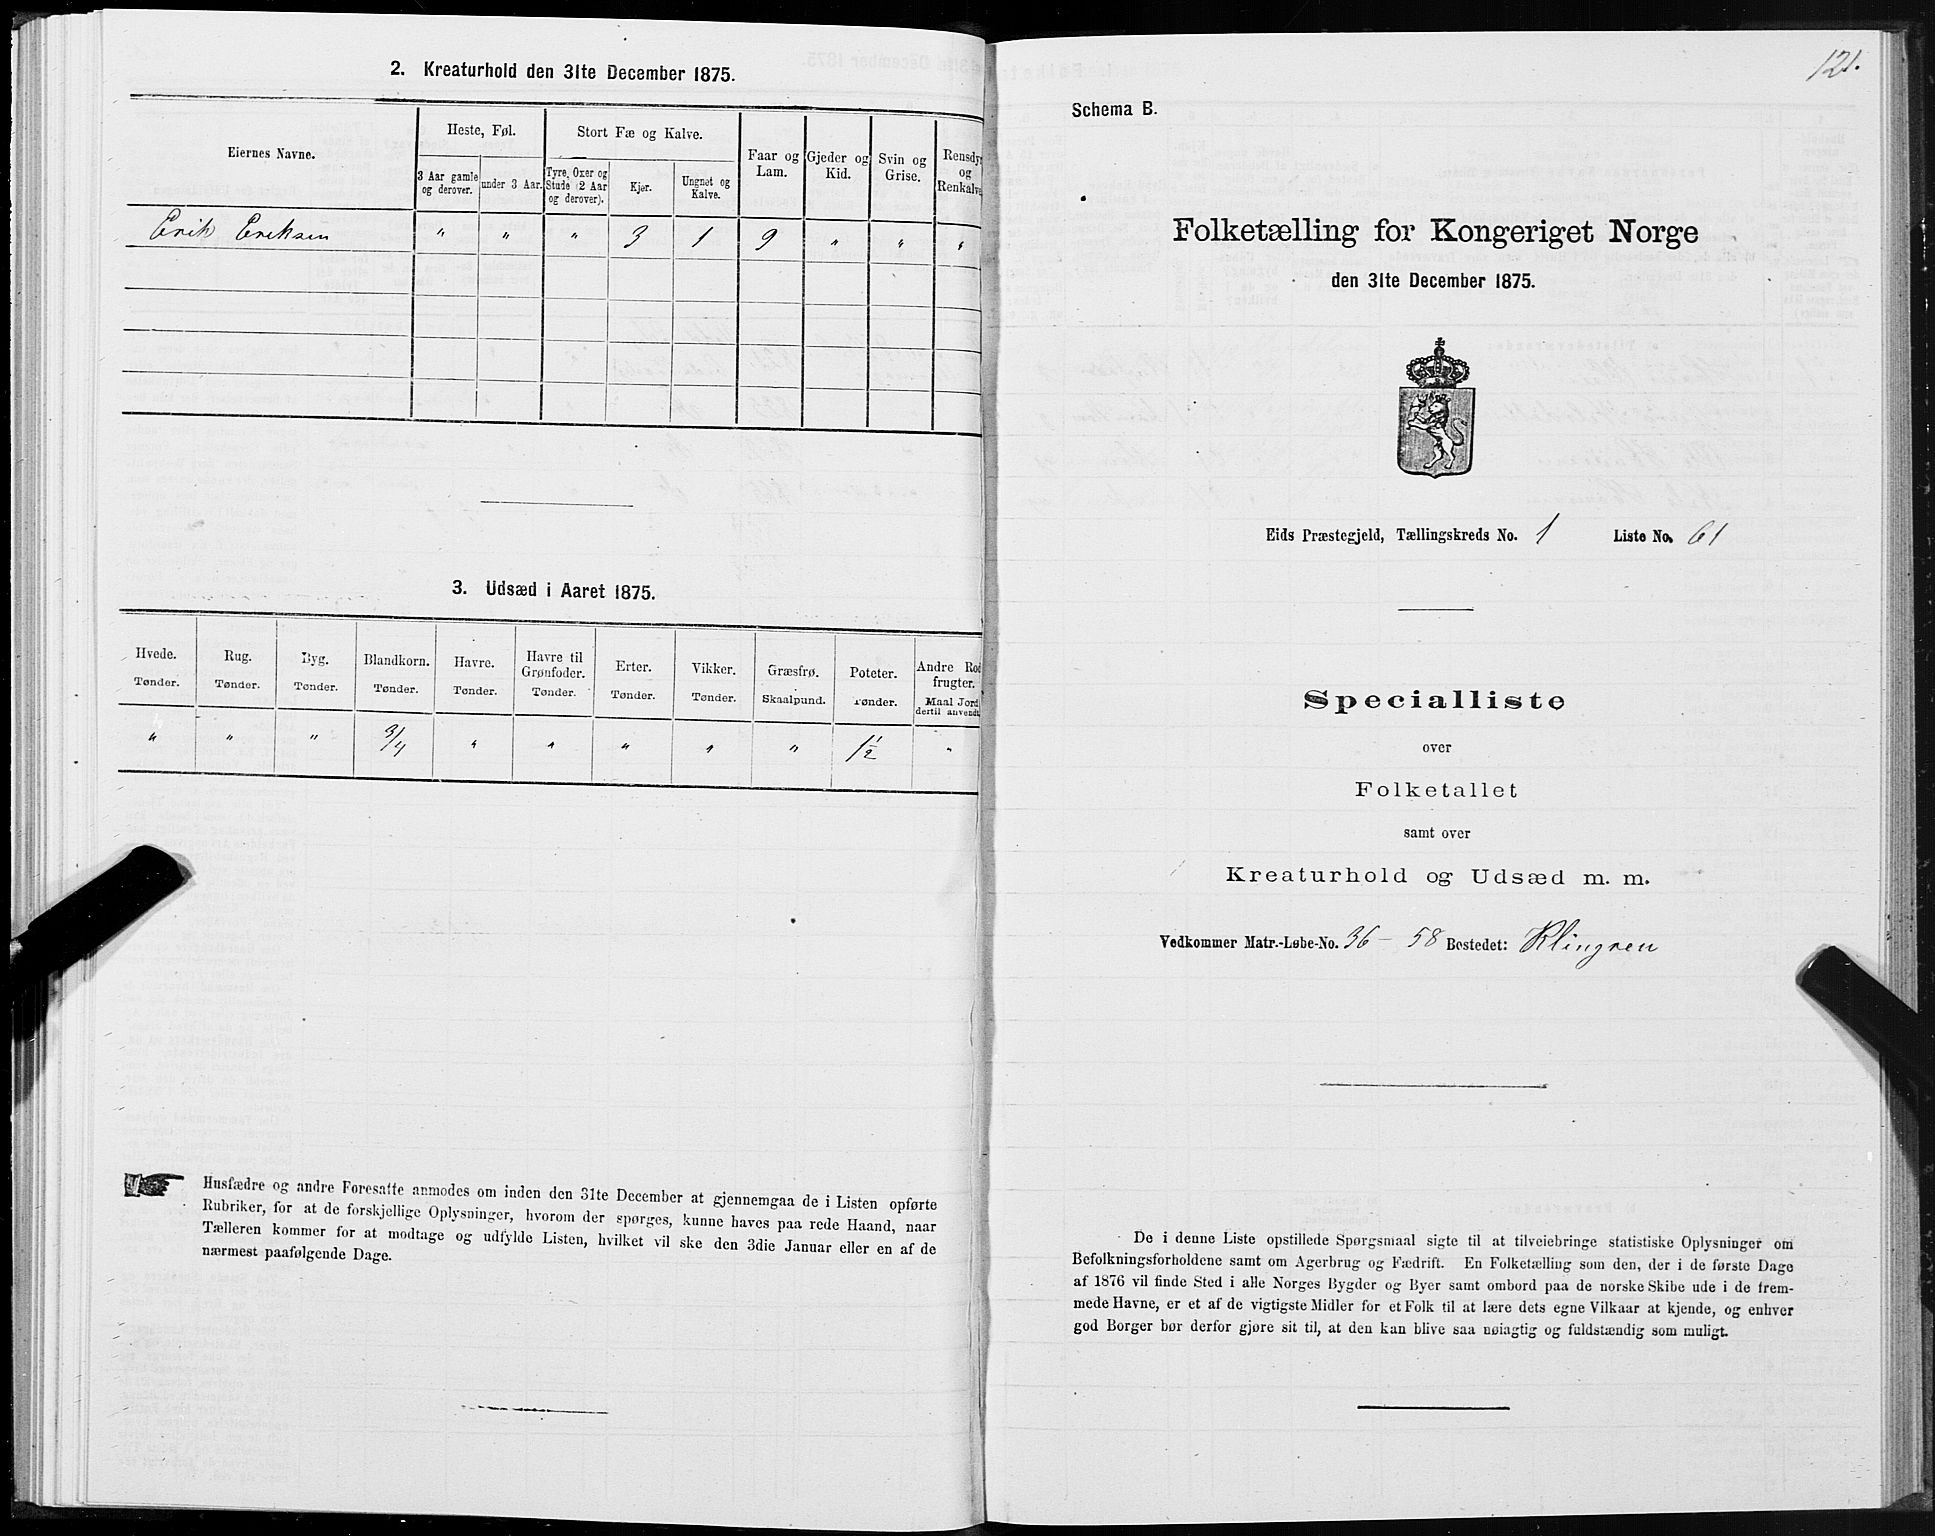 2. Kreaturhold den 31te December 1875.
Eiernes Navne.
Heste, Føl.
Stort Fæ og Kalve.
Faar og Lam.
Gjeder og Kid.
Svin og Grise.
Rensdyr og Renkalve
3 Aar gamle og derover.
under 3 Aar.
Tyre, Oxer og Stude (2 Aar og derover).
Kjør.
Ungnøt og Kalve.
Erik Eriksen " " " 3 1 9 " " "
3. Udsæd i Aaret 1875.
Hvede. Rug. Byg. Blandkorn. Havre. Havre til Grønfoder. Erter. Vikker. Græsfrø. Poteter. Andre Rodfrugter.
Tønder. Tønder. Tønder. Tønder. Tønder. Tønder. Tønder. Tønder. Skaalpund. Tønder. Maal Jord dertil anvendt
" " " 3/4 " " " " " 1 1/2 "
Husfædre og andre Foresatte anmodes om inden den 31te December at gjennemgaa de i Listen opførte
Rubriker, for at de forskjellige Oplysninger, hvorom der spørges, kunne haves paa rede Haand, naar
Tælleren kommer for at modtage og udfylde Listen, hvilket vil ske den 3die Januar eller en af de
nærmest paafølgende Dage.
121.
Schema B.
Folketælling for Kongeriget Norge
den 31te December 1875.
Eids Præstegjeld, Tællingskreds No. 1 Liste No. 61
Specialliste
over
Folketallet
samt over
Kreaturhold og Udsæd m. m.
Vedkommer Matr.-Løbe-No. 36 - 58 Bostedet: Klingren
De i denne Liste opstillede Spørgsmaal sigte til at tilveiebringe statistiske Oplysninger om
Befolkningsforholdene samt om Agerbrug og Fædrift. En Folketælling som den, der i de første Dage
af 1876 vil finde Sted i alle Norges Bygder og Byer samt ombord paa de norske Skibe ude i de frem-
mede Havne, er et af de vigtigste Midler for et Folk til at lære dets egne Vilkaar at kjende, og enhver
god Borger bør derfor gjøre sit til, at den kan blive saa nøiagtig og fuldstændig som muligt.